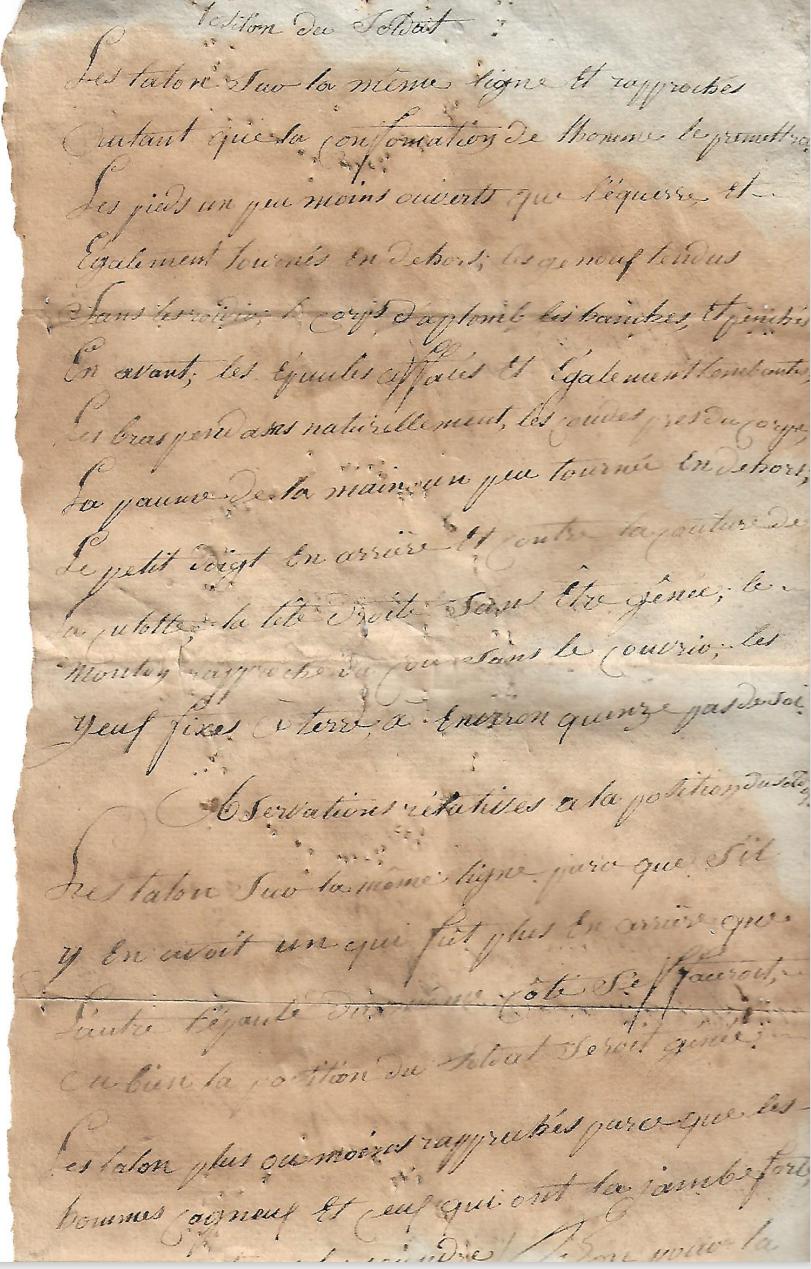 position du Soldat
Les talon Sur la même ligne Et rapprochés
autant que la conformation de lhomme le premettra
Les pieds un peu moins ouverts que l'équerre, Et
Également tournés En dehors; les genouf tendus
Sans les roidir; le corps d'aplomb les hanches, Et penchés
En avant; les Épaules effacées Et Également tombantes
Les bras pendans naturellement, les coudes pres du corps,
La paume de la main un peu tournée En dehors,
Le petit doigt En arrière Et contre la couture de
la culotte; la tête droite Sans Être gênée; le
menton rapproché du cou Sans le couvrir; les
yeuf fixés à terre, a Environ quinze pas de soi.
Observations rélatives a la position du soldat
Les talon Sur la même ligne parce que S'il
y En avoit un qui fut plus En arrière que
L'autre l'épaule du même côté S'effaceroit,
ou bien la position du Soldat Seroit gênée;
Les talon plus ou moins rapprochés parce que les
hommes cagneuf Et ceuf qui ont la jambe forte
pour la